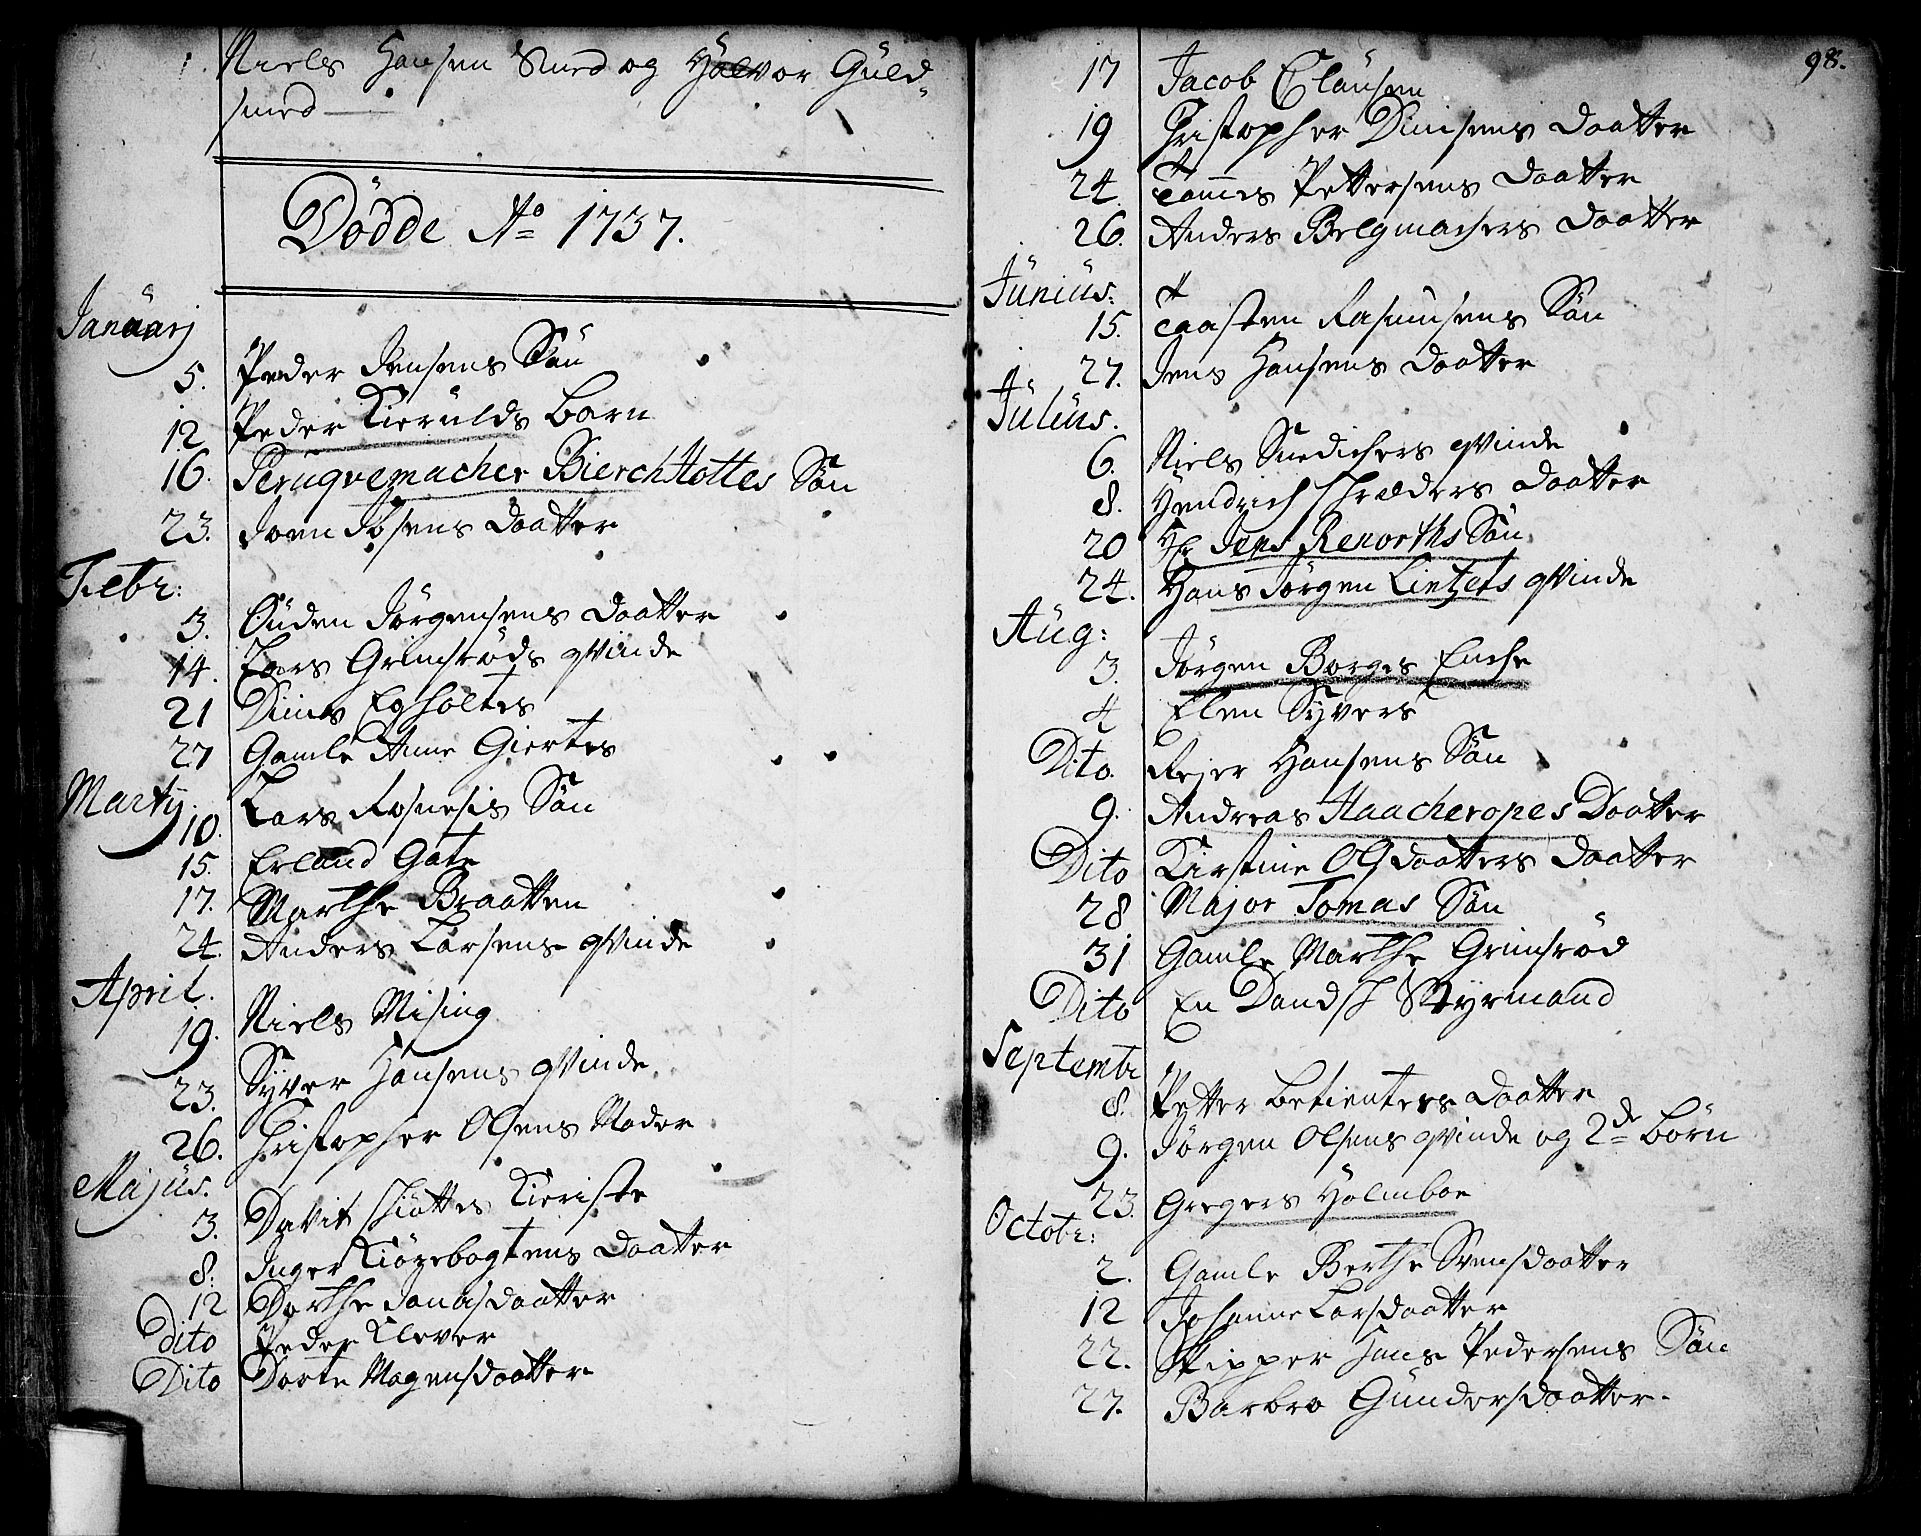 Niels Hansen Smed og Halvor Guld-
smed
Dödde Ao 1737.
Januarj
5. Peder Jensens Sön
12 Peder Kierulds barn
16. Peruqvemacher BierchHottes Sön
23. Joen Josens daatter
Febr:
3. Ouden Jörgensens daatter
14. Lars Grimsröds qvinde
21 Dines Egholtes
27 Gamle Anne Giertes
Martij
10. Lars Rosnesis Sön
15. Erland Gate
17. Marthe Braatten
24. Anders Larsens qvinde
April.
19. Niels Mising
23. Syver Hansens qvinde
26. Christopher Olsens Moder
Majus.
3. Davit Schöttes Kieriste
8. Inger Kiögebogtens daatter
12 Dorthe Jonasdaatter
dito Peder Klever
Dito Dorte Mogensdaatter
98.
17 Jacob Clausen
19 Christopher Dinesens daatter
24. Tommes Pettersens daatter
26. Anders Belgmachers daatter
Junius:
15. Taasten Rasmusens Sön
27. Jens Hansens daatter
Julius.
6. Niels Snedichers qvinde
8. Hendrich Schræders daatter
20 Hr Jens Renorths Sön
24. Hans Jörgen Lintzets qvinde
Aug:
3. Jörgen Borges Enche
4 Elen Syvers
Dito. Rejer Hansens Sön
9. Andreas Haacheropes Daatter
Dito Kirstine Olsdaatters daatter
28 Major Tomas Sön
31 Gamle Marthe Grimsröd
Dito En Dandsch Styrmand
Septembr
8. Petter betienters daatter
9. Jörgen Olsens qvinde og 2de börn
23. Gregers Holmboe
Octobr:
2. Gamle Berthe Svensdaatter
12 Johanne Larsdaatter
22. Skipper Hans Pedersens Sön
27. Barbro Gundersdaatter.